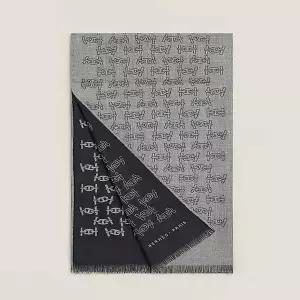 HERMÈS-PARIS